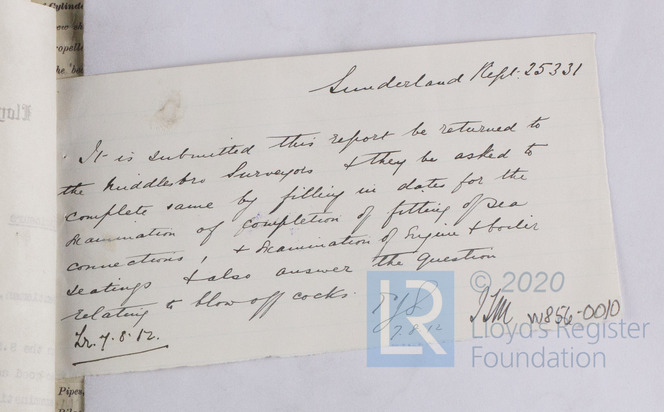 Sunderland Rept. 25331
It is submitted this report be returned to
the Middlesbro Surveyors & they be asked to
complete same by filling in dates for the
examination of completion of fitting of sea
connections, & examination of Engine & boiler
seatings & also answer the question
relating to blow off cocks.
Lr. 7.8.12.
7.8.12
W856-0010
LR
© 2020
Lloyd's Register
Foundation
Cylinde
Pipes,